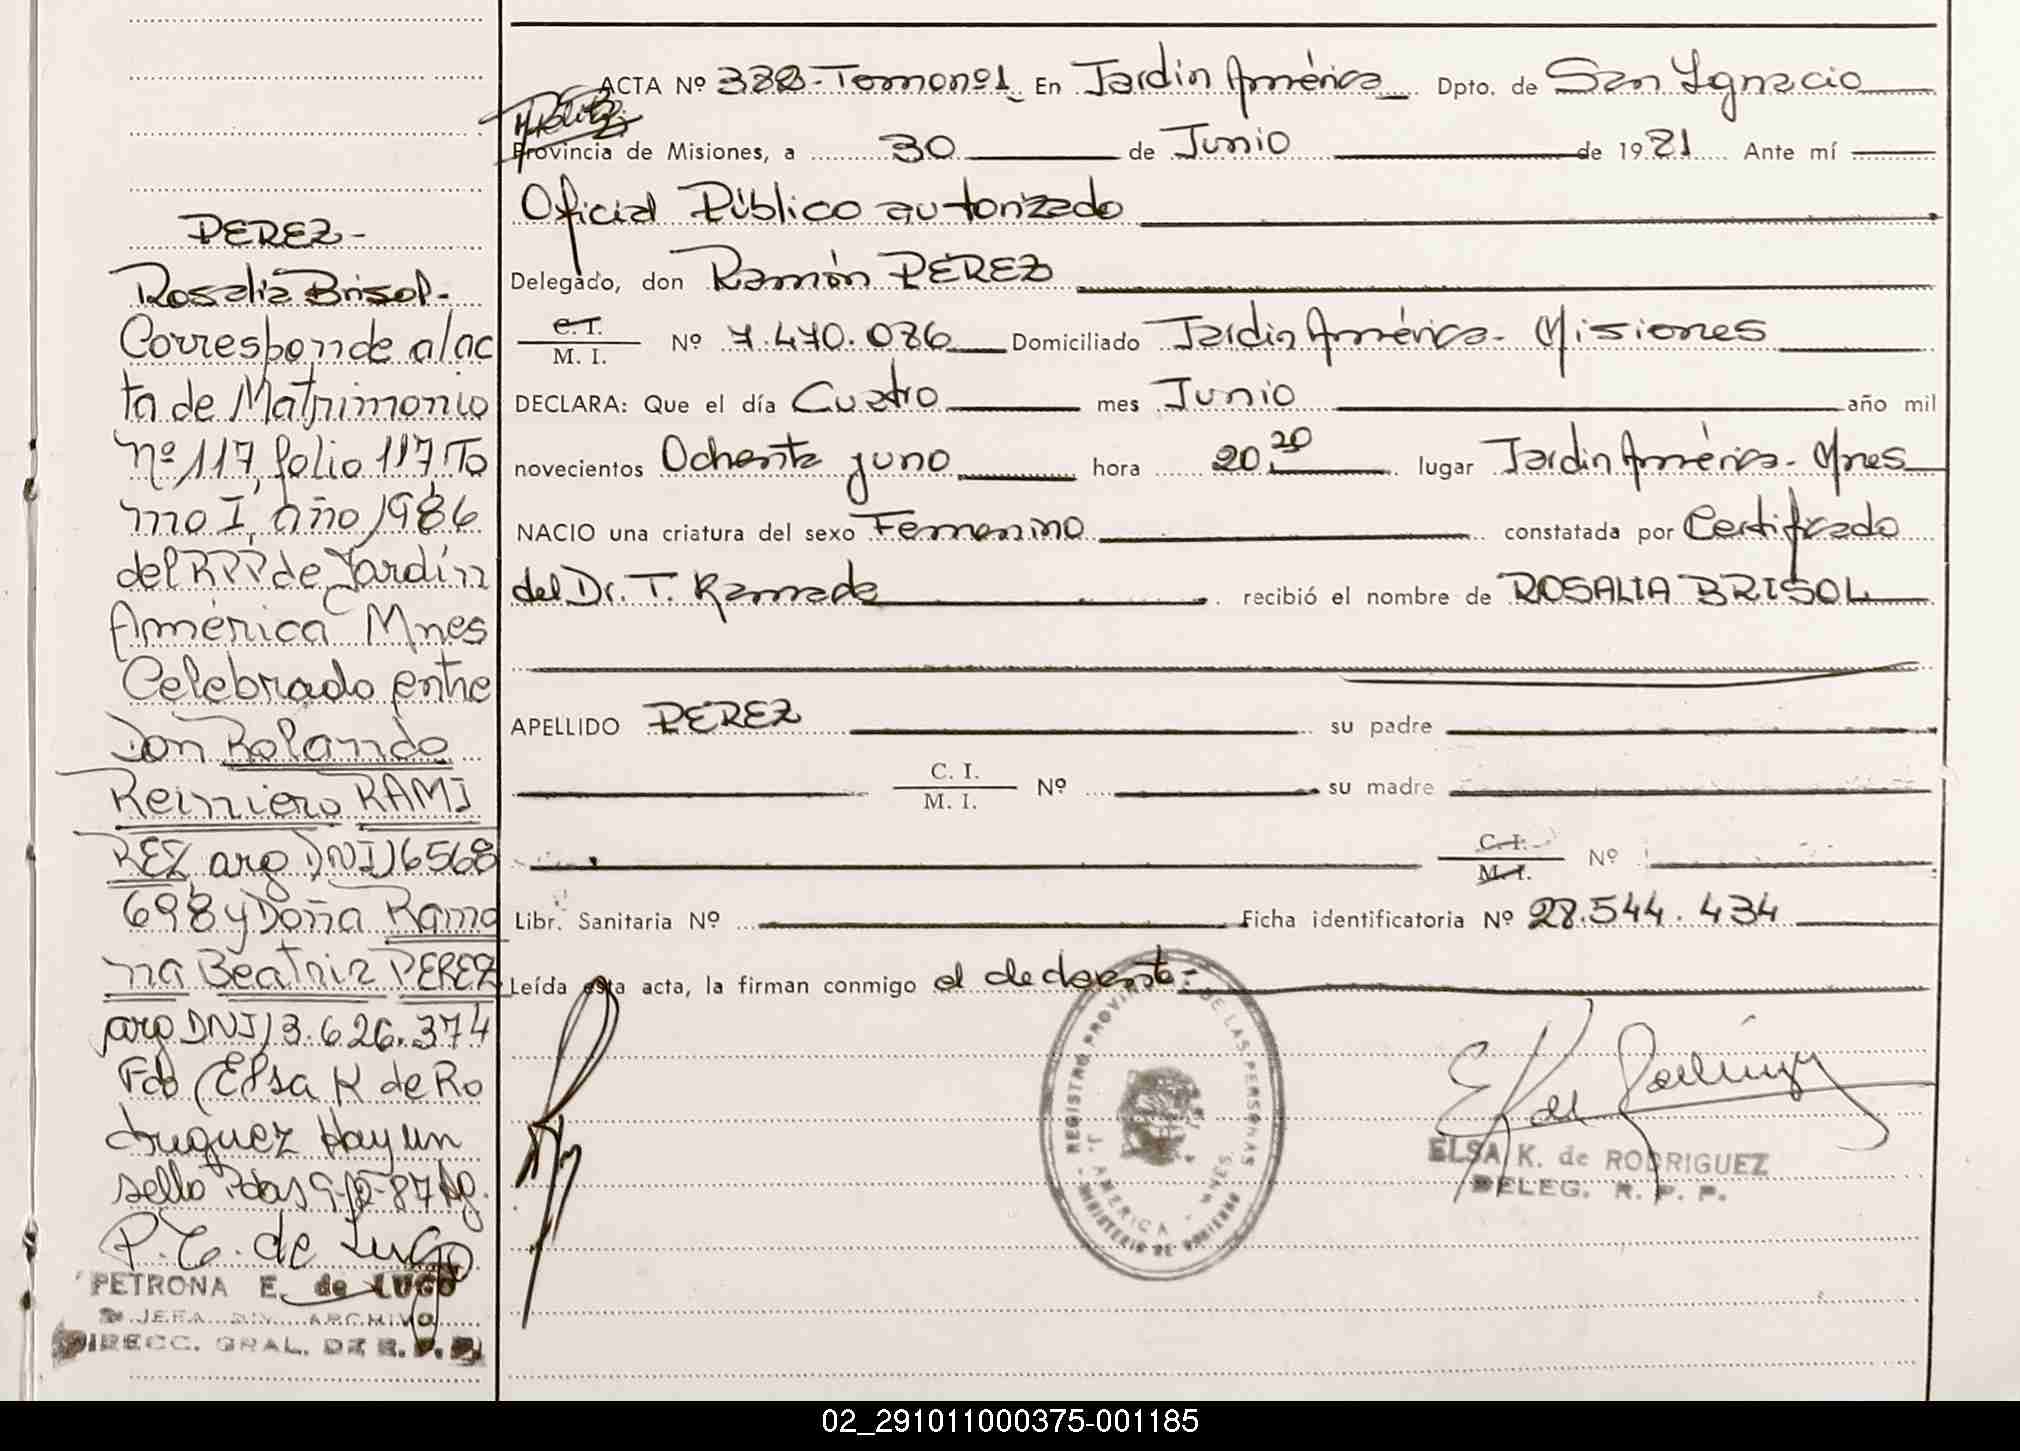 PEREZ-
Rosalia Brisol-
Corresponde a/ac
ta de Matrimonio
nº 117, folio 117. To
mo I, año 1986
del RPP de Jardín
América Mnes
Celebrado entre
Don Rolando
Reiniero RAMI
REZ, arg DNI 16568
698 y Doña Ramo
na Beatriz PEREZ
arg DNI 13.626.374
Fdo (Elsa K de Ro
druguez Hay un
sello Pdas 9-12-87
P. E. de Lugo
PETRONA E. de LUGO
JEFA DIV. ARCHIVO
DIRECC. GRAL. DE R. P. P.
ACTA Nº 328-Tomo nº1 En Jardin América Dpto. de San Ignacio
Provincia de Misiones, a 30 de Junio de 1981 Ante mí
Oficial Público autorizado
Delegado, don Ramón PEREZ
C.I.
M. I. Nº 7.470.086 Domiciliado Jardin América- Misiones
DECLARA: Que el día Cuatro mes Junio año mil
novecientos Ochenta yuno hora 20.20 lugar Jardin América- Mnes
NACIO una criatura del sexo Femenino constatada por Certificado
del Dr. T. Ramada recibió el nombre de ROSALIA BRISOL
APELLIDO PEREZ su padre
C. I.
M. I. Nº su madre
C. I.
M. I. Nº
Libr. Sanitaria Nº Ficha identificatoria Nº 28.544.434
Leída esta acta, la firman conmigo el declarante-
REGISTRO PROVINCIAL DE LAS PERSONAS
J. AMERICA - MNES.
MINISTERIO DE GOBIERNO
ELSA K. de RODRIGUEZ
DELEG. R. P. P.
02_291011000375-001185